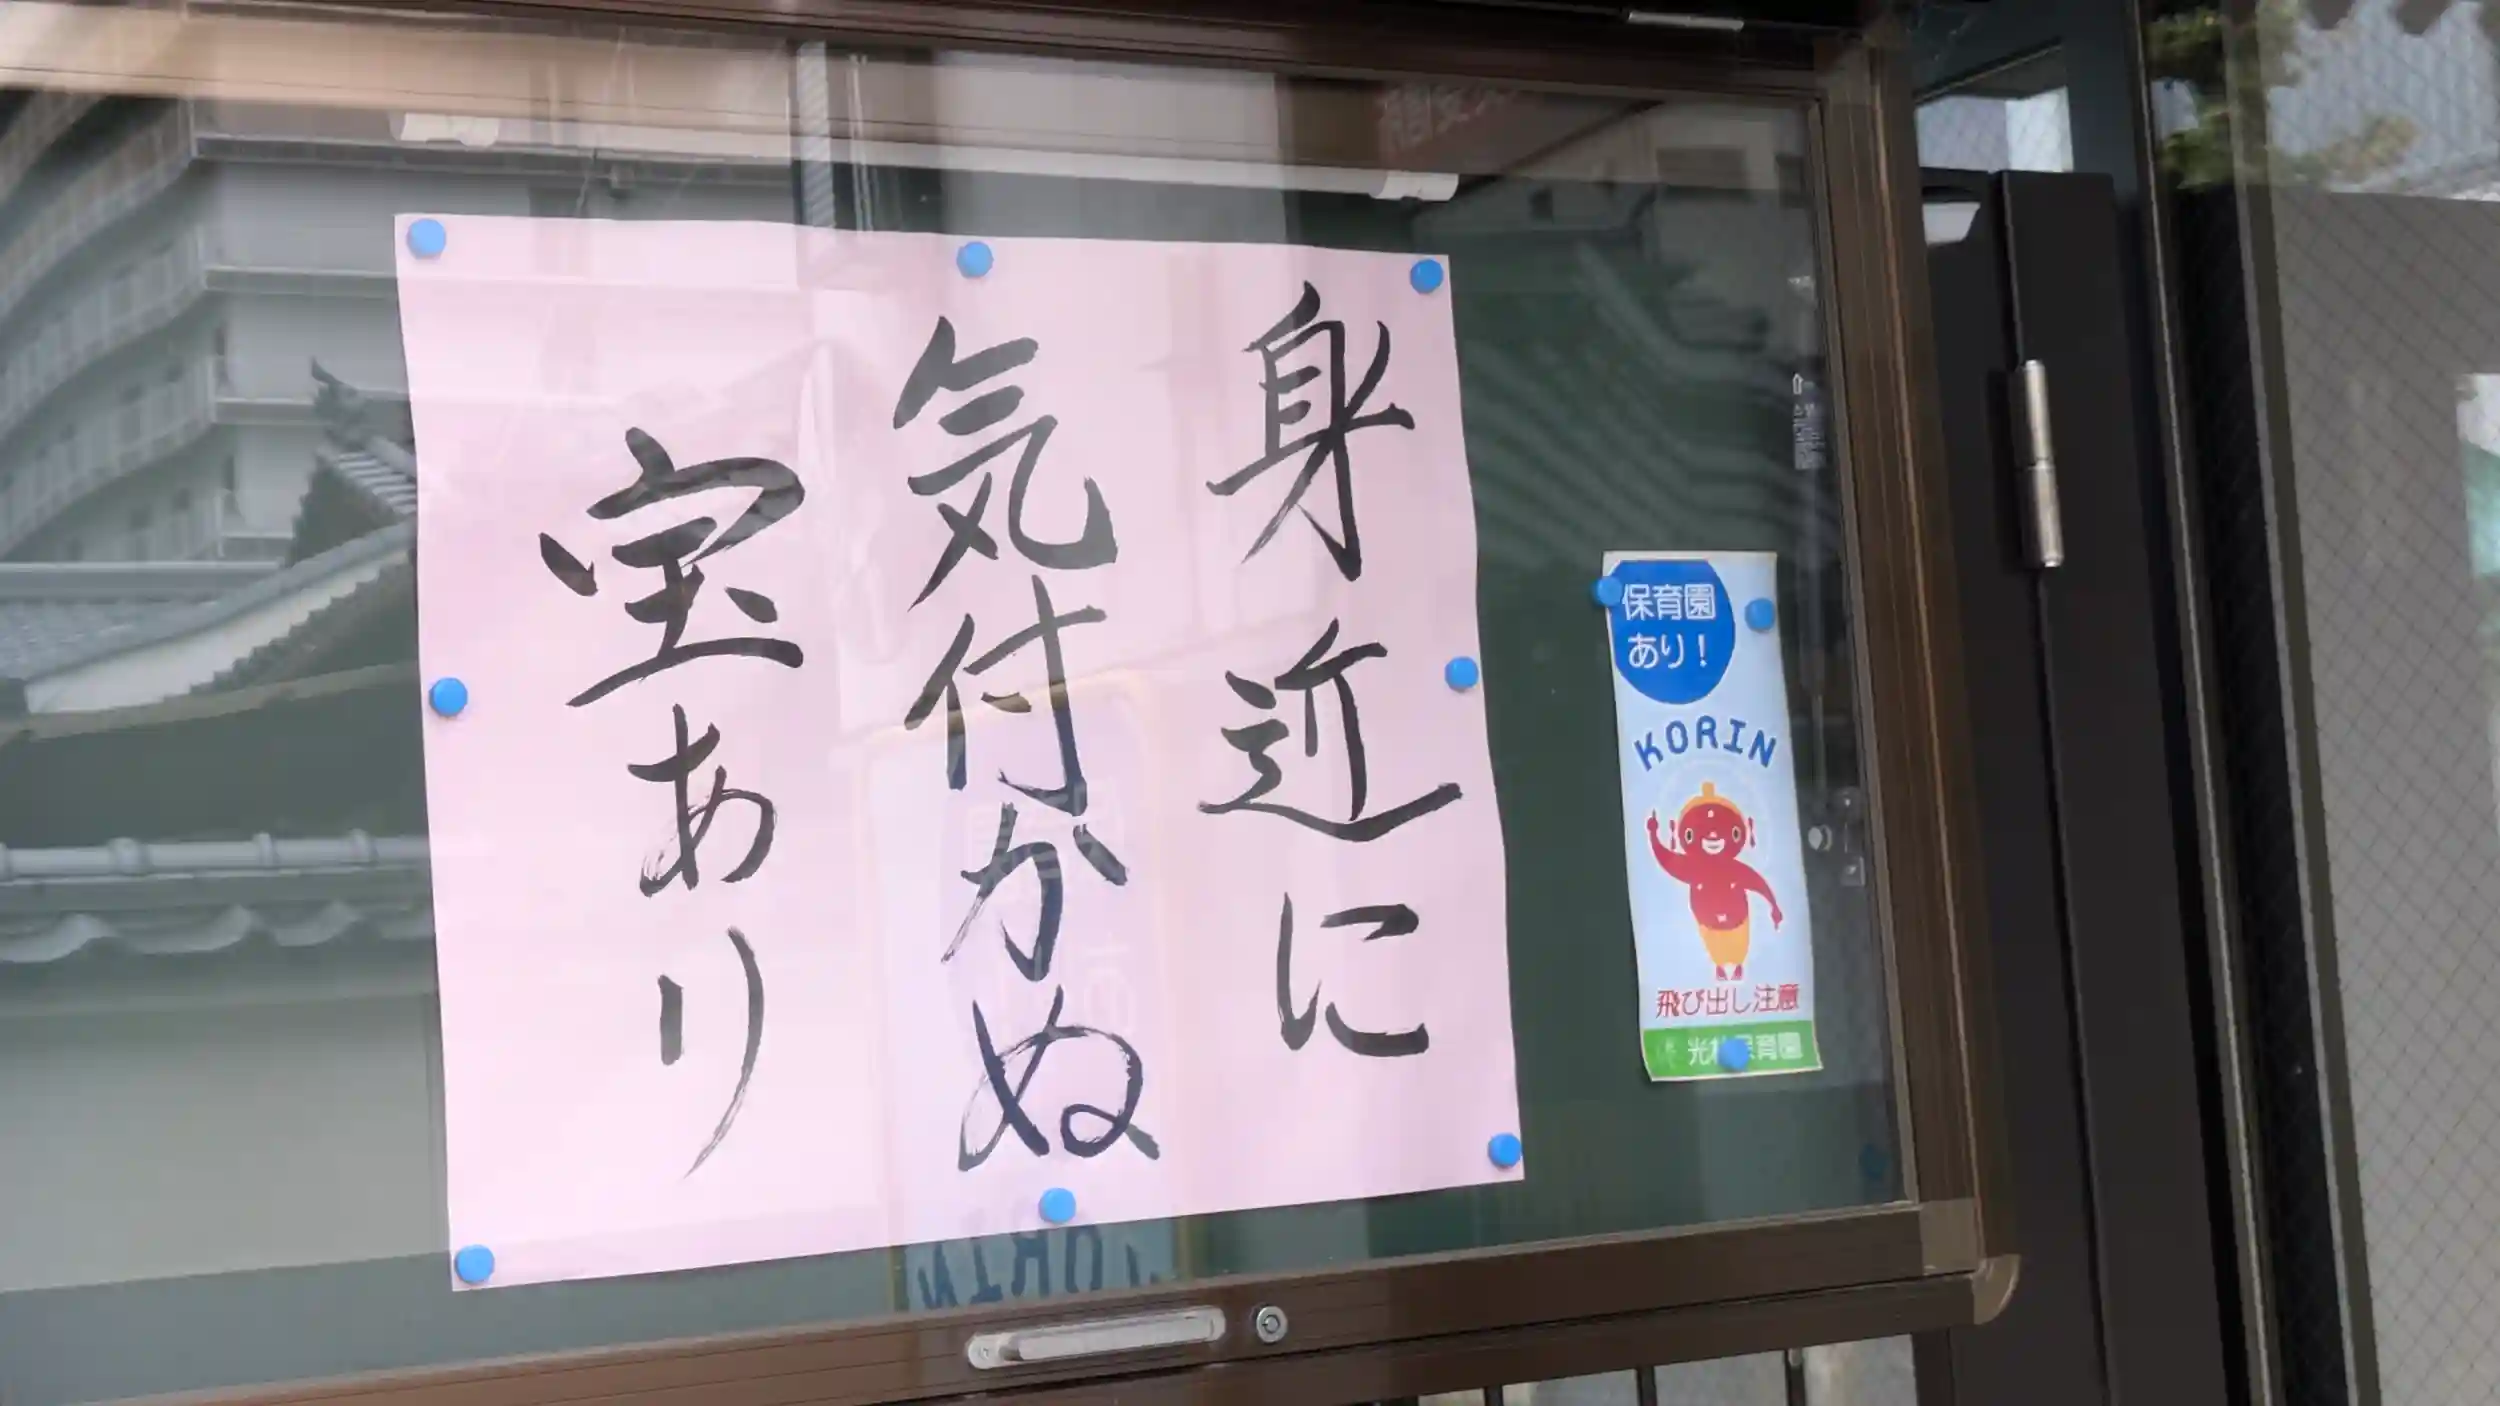 身近に
気付かぬ
宝あり
保育園
あり!
KORIN
飛び出し注意
保育園